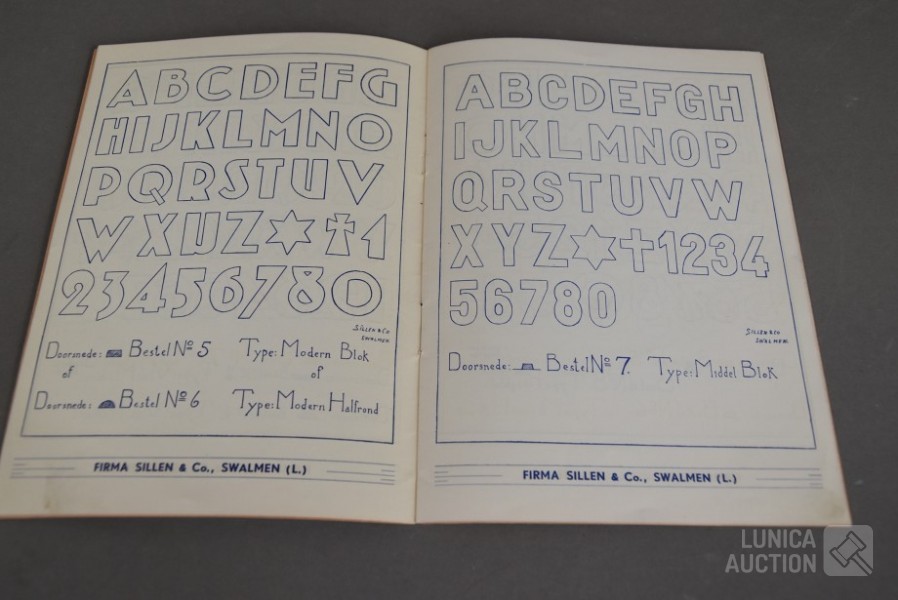 ABCDEFG
HIJKLMNO
PQRSTUV
WXIJZ✡✝1
23456780
SILLEN & Co
SWALMEN
Doorsnede: Bestel No 5 Type: Modern Blok
of of
Doorsnede: Bestel No 6 Type: Modern Halfrond
FIRMA SILLEN & Co., SWALMEN (L.)
ABCDEFGH
IJKLMNOP
QRSTUVW
XYZ✡✝1234
56780
SILLEN & Co
SWALMEN
Doorsnede: Bestel No 7. Type: Middel Blok
FIRMA SILLEN & Co., SWALMEN (L.)
LUNICA
AUCTION